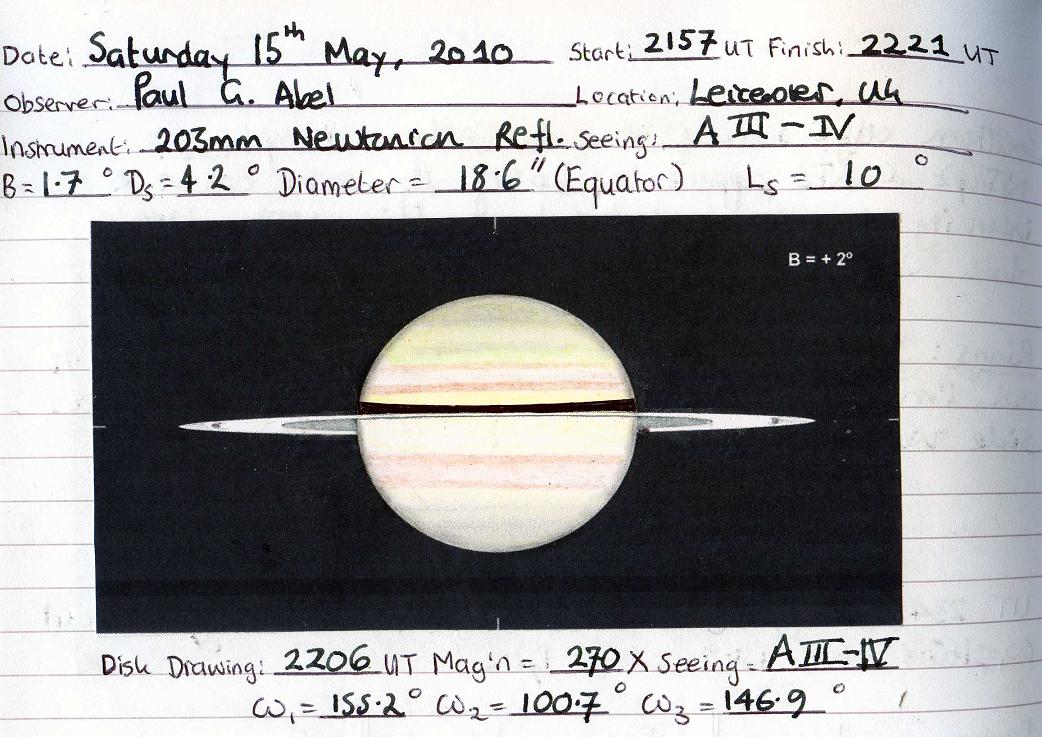 Date: Saturday 15th May, 2010 Start: 2157 UT Finish: 2221 UT
Observer: Paul G. Abel Location: Leicester, UK
Instrument: 203mm Newtonian Refl. Seeing: A III - IV
B = 1.7° Ds = 4.2° Diameter = 18.6" (Equator) Ls = 10°
B = + 2°
Disk Drawing: 2206 UT Mag'n = 270 X Seeing - A III-IV
ω1 = 155.2° ω2 = 100.7° ω3 = 146.9°